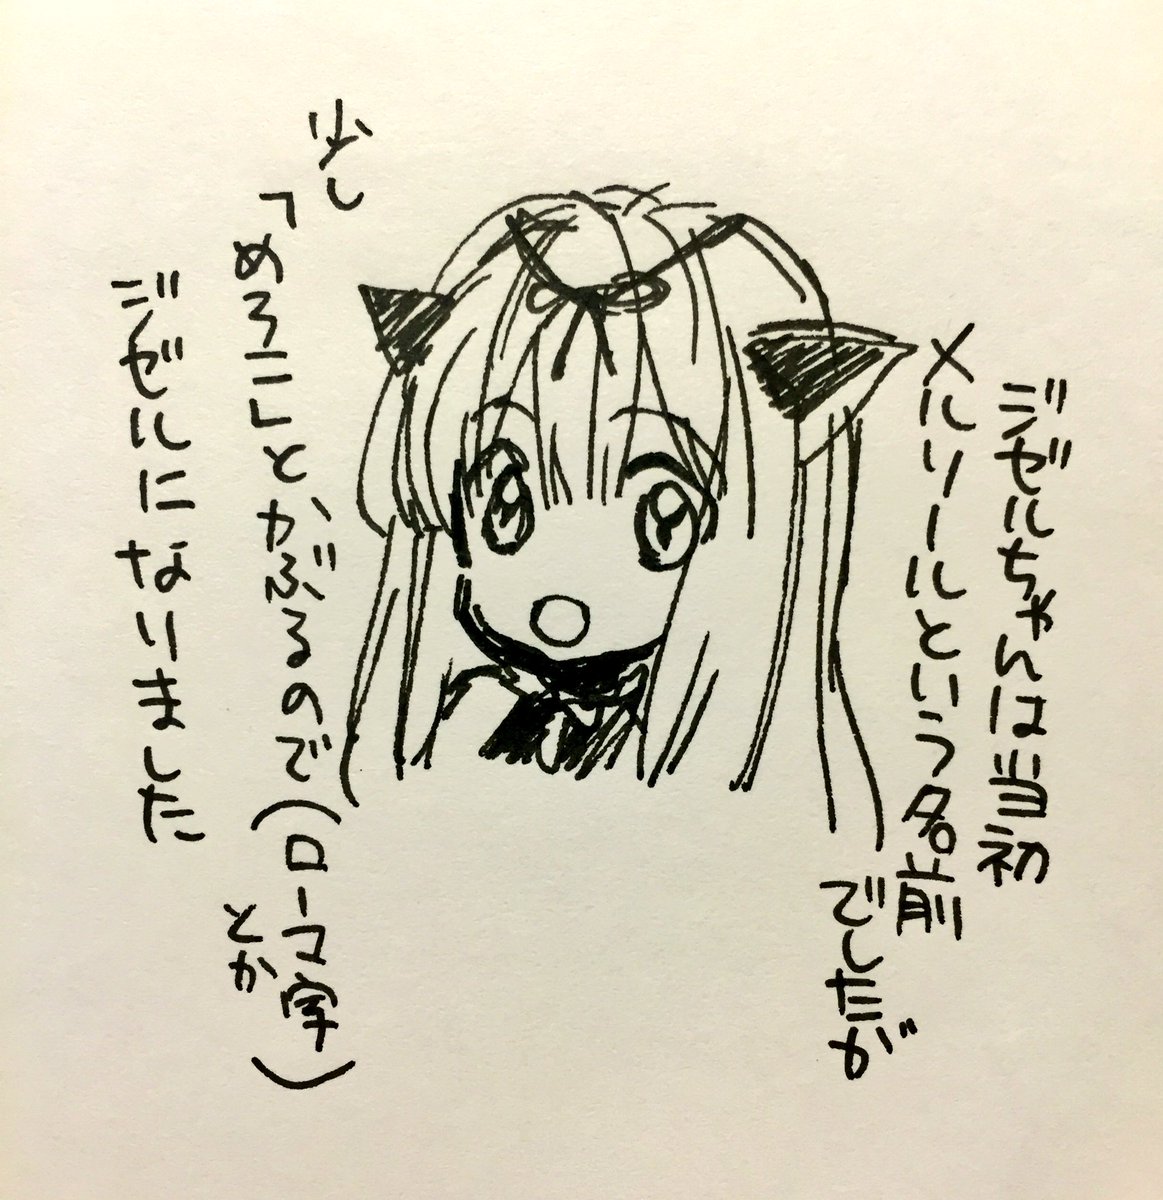 ジゼルちゃんは当初
メルリールという名前
でしたが
少し
「めろこ」とかぶるので(ローマ字
とか)
ジゼルになりました